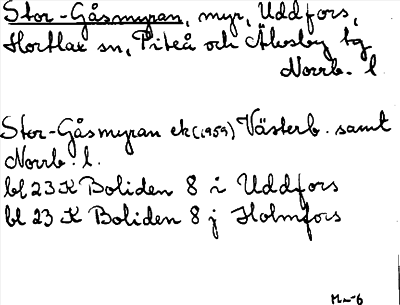 Stor-Gåsmyran, myr, Uddfors,
Hortlax sn, Piteå och Älvsby tg
Norrb. l.
Stor-Gåsmyran ek (1959) Västerb. samt
Norrb. l.
bl 23 K Boliden 8 i Uddfors
bl 23 K Boliden 8 j Holmfors